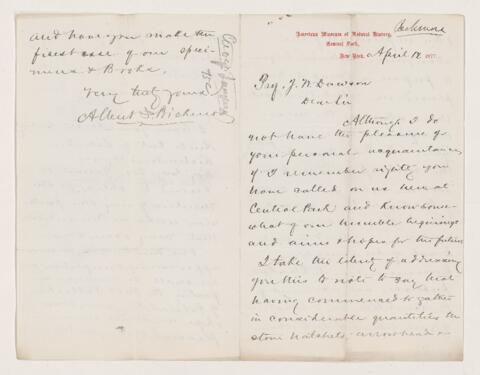 and have you make the
finest use of our speci-
mens & Books.
Very truly yours
Albert S. Bickmore
Bickmore
American Museum of Natural History,
Central Park,
New York, April 12 1877.
Prof. J. W. Dawson
Dear Sir
Although I do
not have the pleasure of
your personal acquaintance
if I remember rightly you
have called on us here at
Central Park and know some-
what of our humble beginings
and aims & hopes for the future
I take the liberty of addressing
you this to note to say that
having commenced to gather
in considerable quantities the
stone hatchets, arrowheads